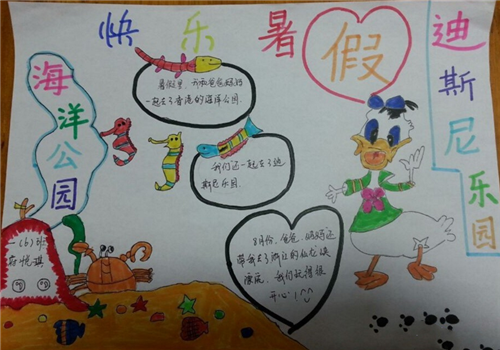 快乐暑假
海洋公园
迪斯尼乐园
暑假里，我和爸爸妈妈
一起去了香港的海洋公园.
我们还一起去了迪
斯尼乐园.
8月份，爸爸、妈妈还
带我去了浙江的仙龙峡
漂流，我们玩得很
开心！
一(6)班